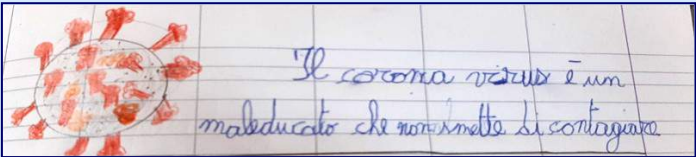 Il corona virus è un
maleducato che non smette di contagiare